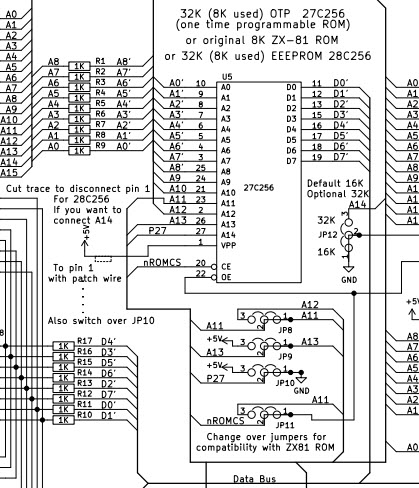 32K (8K used) OTP 27C256
(one time programmable ROM)
or original 8K ZX-81 ROM
or 32K (8K used) EEEPROM 28C256
A0
A1
A2
A3
A4
A5
A6
A7
A8
A9
A10
A11
A12
A13
A14
A15
A8 1K R1 A8'
A7 1K R2 A7'
A6 1K R3 A6'
A5 1K R4 A5'
A4 1K R5 A4'
A3 1K R6 A3'
A2 1K R7 A2'
A1 1K R8 A1'
A0 1K R9 A0'
U5
27C256
A0' 10 A0 D0 11 D0'
A1' 9 A1 D1 12 D1'
A2' 8 A2 D2 13 D2'
A3' 7 A3 D3 15 D3'
A4' 6 A4 D4 16 D4'
A5' 5 A5 D5 17 D5'
A6' 4 A6 D6 18 D6'
A7' 3 A7 D7 19 D7'
A8' 25 A8
A9 24 A9
A10 21 A10
A11 23 A11
A12 2 A12
A13 26 A13
P27 27 A14
1 VPP
nROMCS 20 CE
22 OE
Cut trace to disconnect pin 1
For 28C256
If you want to
connect A14
+5V
To pin 1
with patch wire
Also switch over JP10
Default 16K
Optional 32K
A14
32K 3
JP12 2
16K 1
GND
A12
3 1 A11
A11 2 JP8
+5V 3 1 A13
A13 2 JP9
+5V 3 1
P27 2 JP10 GND
A11
3 1
nROMCS 2 JP11
Change over jumpers for
compatibility with ZX81 ROM
1K R17 D4'
1K R16 D3'
1K R15 D5'
1K R14 D6'
1K R13 D2'
1K R12 D7'
1K R11 D0'
1K R10 D1'
Data Bus
A0
A1
A2
A3
A4
A5
A6
A7
A8
+5V
A8
A7
A6
A5
A4
A3
A2
A1
A0